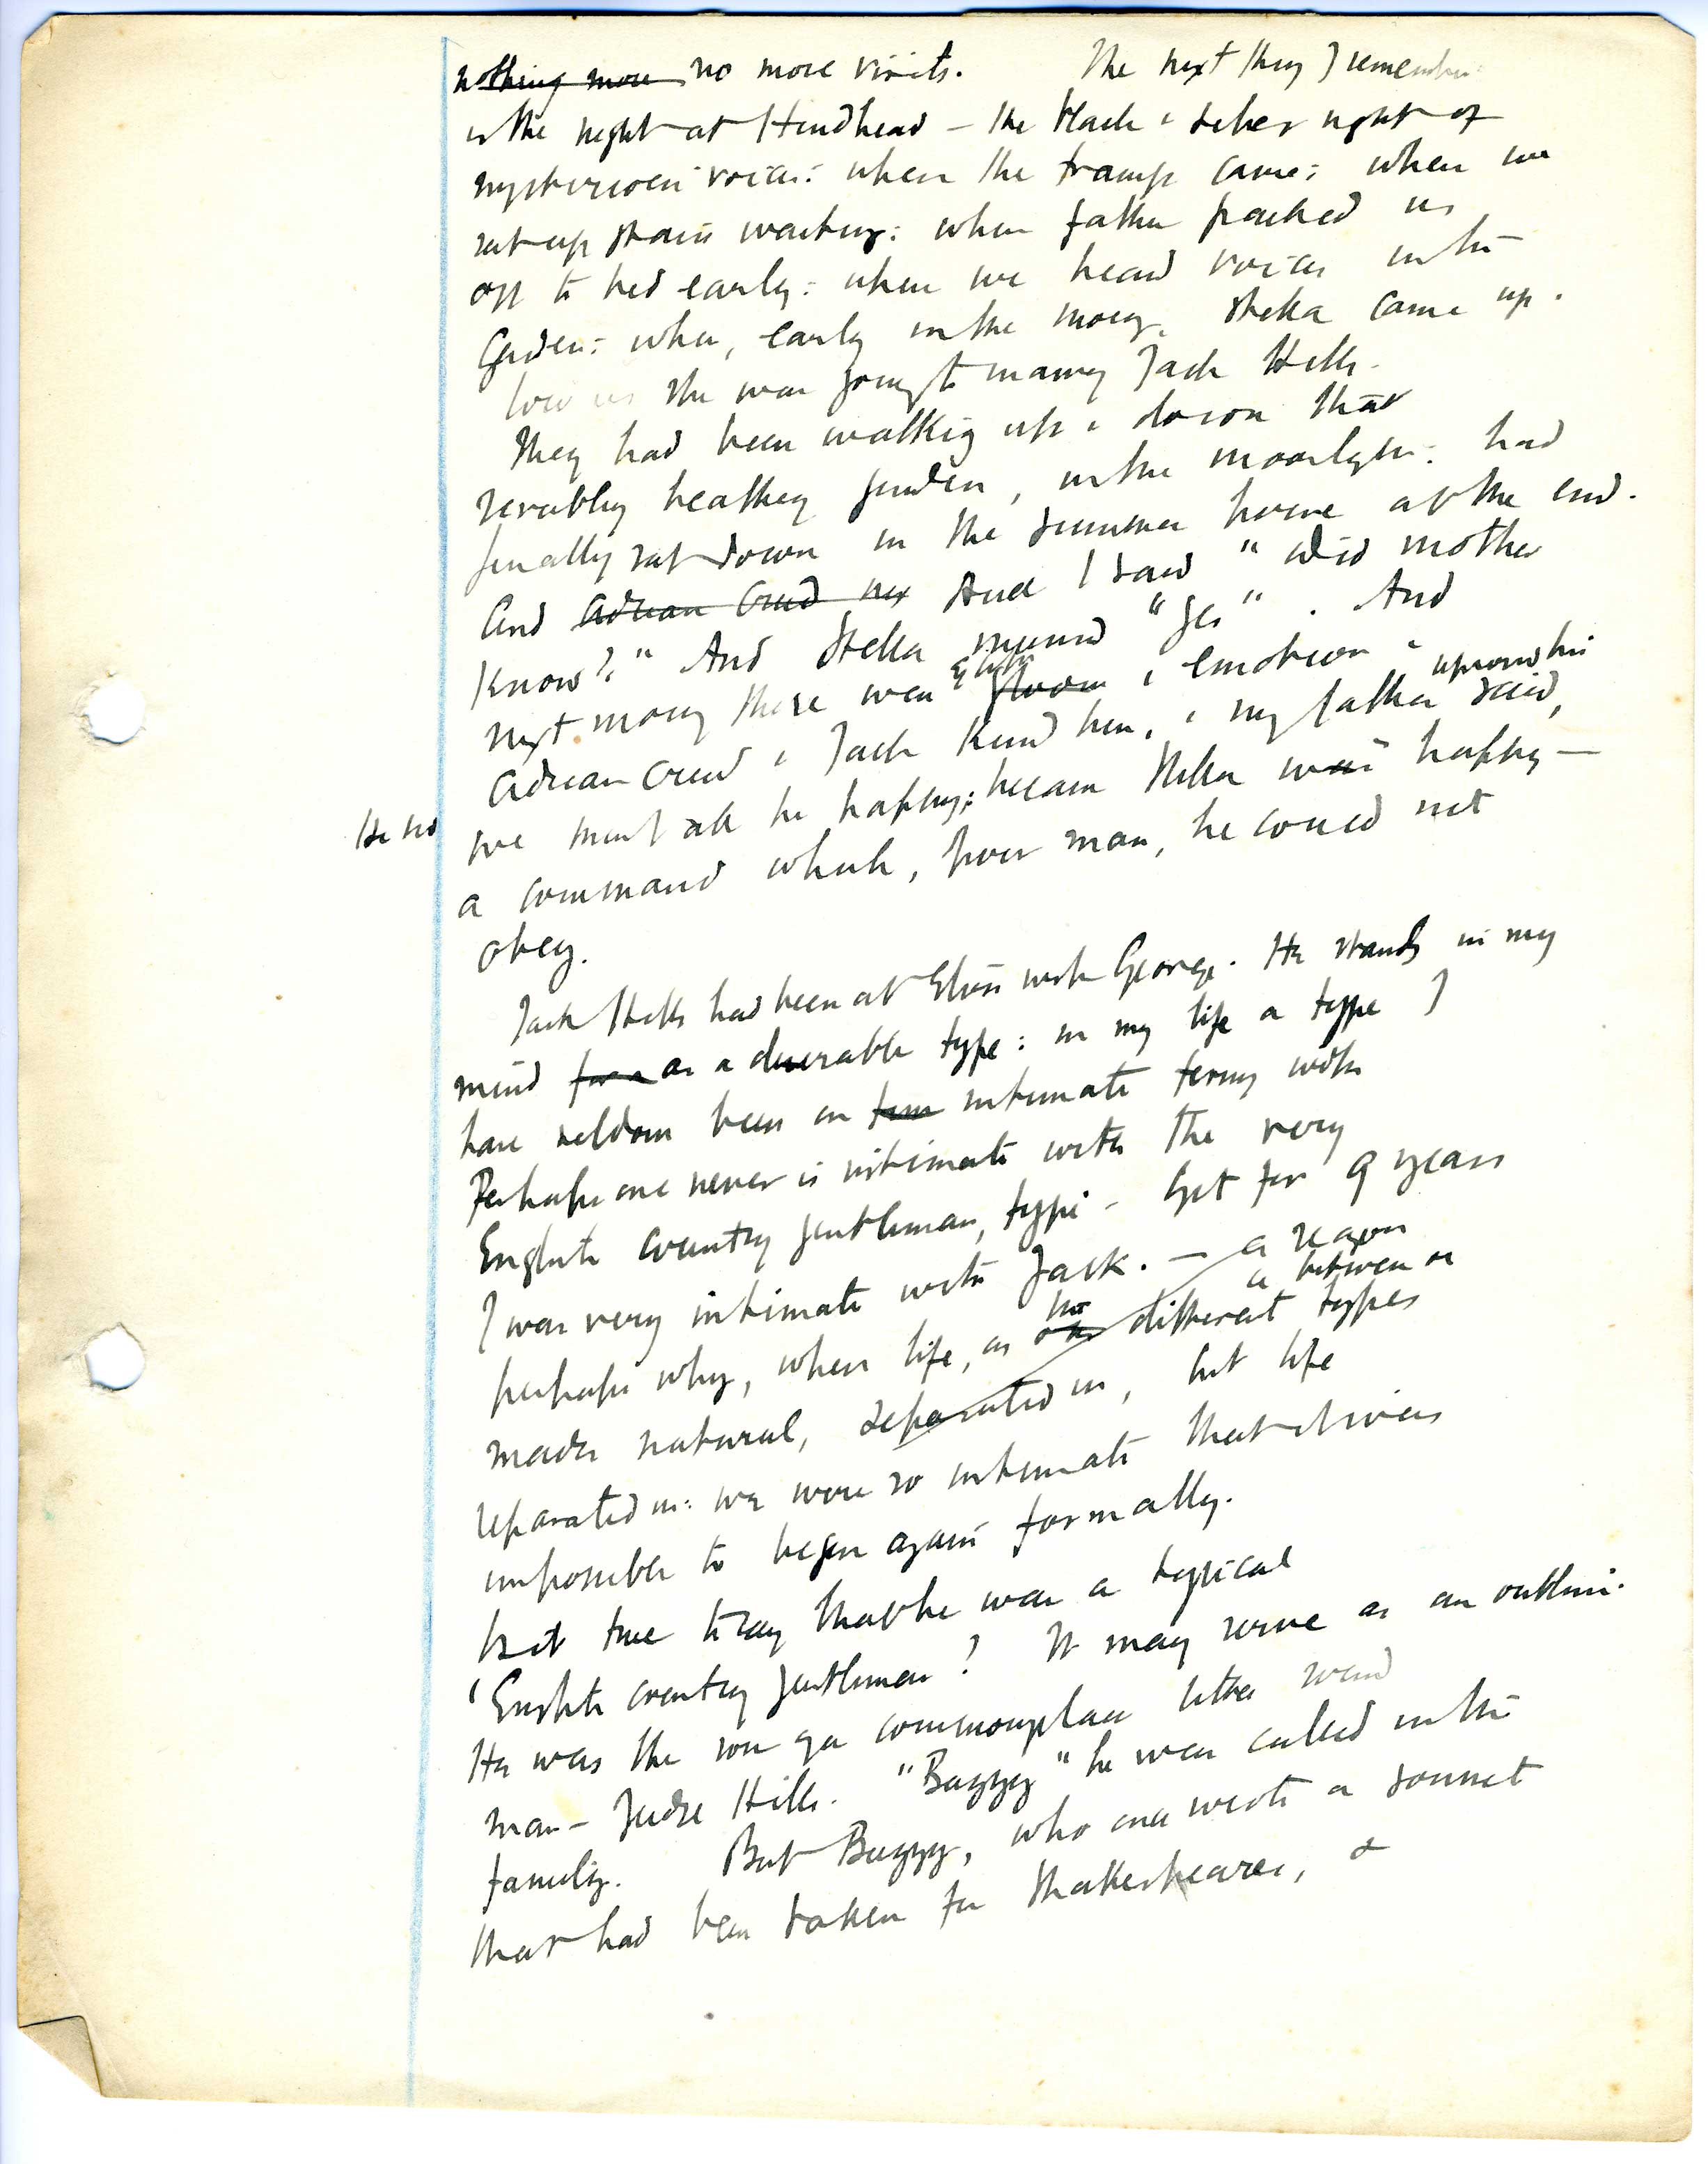 nothing more no more visits. The next thing I remember
is the night at Hindhead – the black & silver night of
mysterious voices: when the tramp came: when we
sat up stairs waiting: when father packed us
off to bed early: when we heard voices in the
garden: when, early in the morng. Stella came up.
told us she was going to marry Jack Hills.
They had been walking up & down that
heathery garden, in the moonlight: had
finally sat down in the summer house at the end.
And Adrian cried And I said "Did mother
know?" And Stella "Yes". And
next morng there was & emotion &
Adrian cried & Jack kissed him, & my father said,
we must all be happy; because Stella was happy –
a command which, poor man, he could not
obey.
Jack Hills had been at Eton with George. He stands in my
mind for a as a desirable type: in my life a type I
have seldom been on term intimate terms with
Perhaps one never is intimate with the very
English country gentleman, type – Yet for 9 years
I was very intimate with Jack. – a reason
perhaps why, when life, as our the different types
made natural, separated us, but life
separated us: we were so intimate that it was
impossible to begin again formally.
Is it true to say that he was a typical
'English country gentleman? It may serve as an outline.
He was the son of a commonplace little round
man – Judge Hills. "Buzzy" he was called in the
family. But Buzzy, who once wrote a sonnet
that had been taken for Shakespeares, &